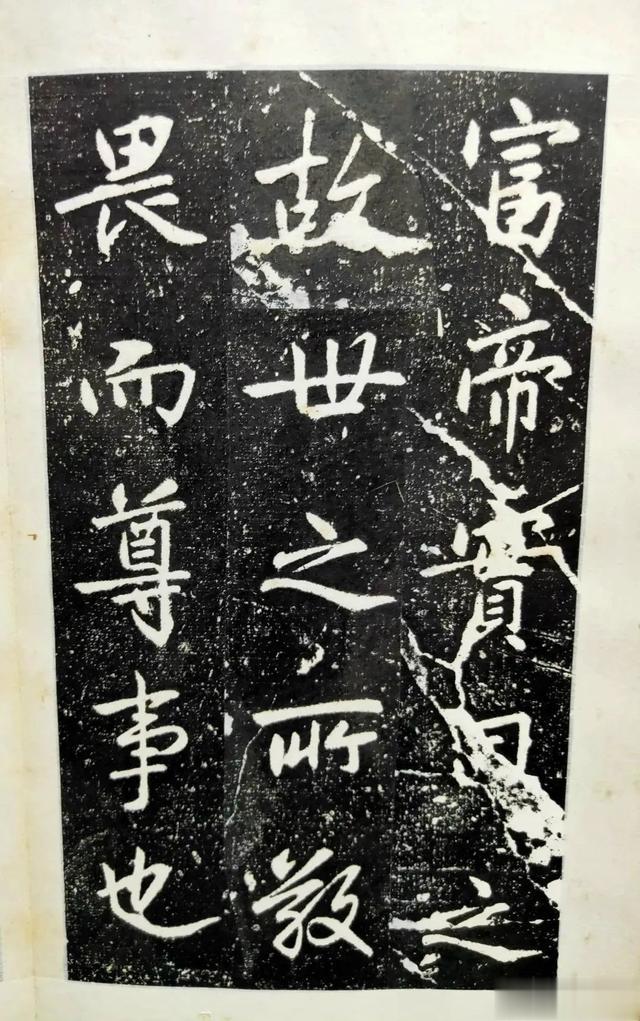 富帝實之
故世之所敬
畏而尊事也